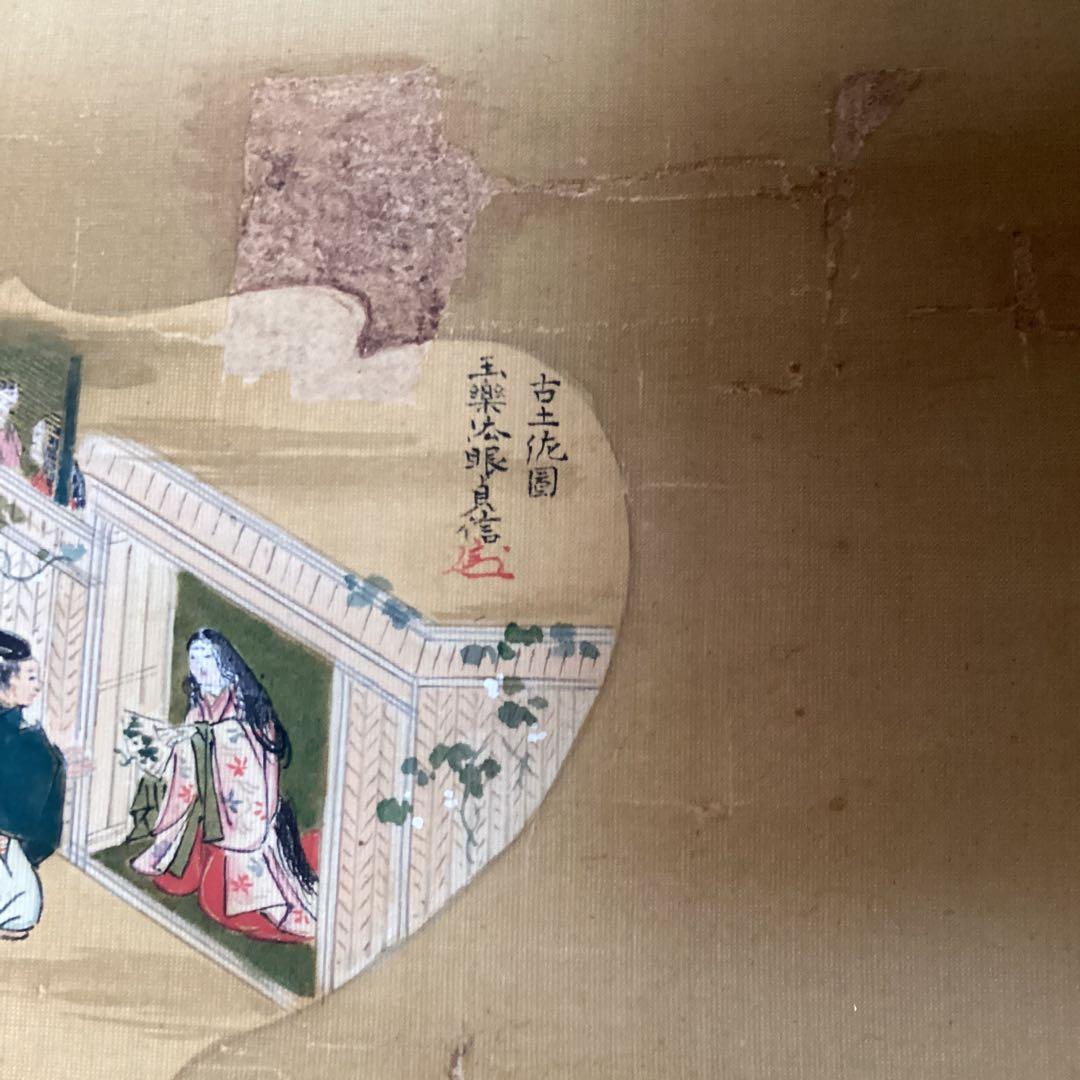 古土佐圖
玉樂法眼貞信